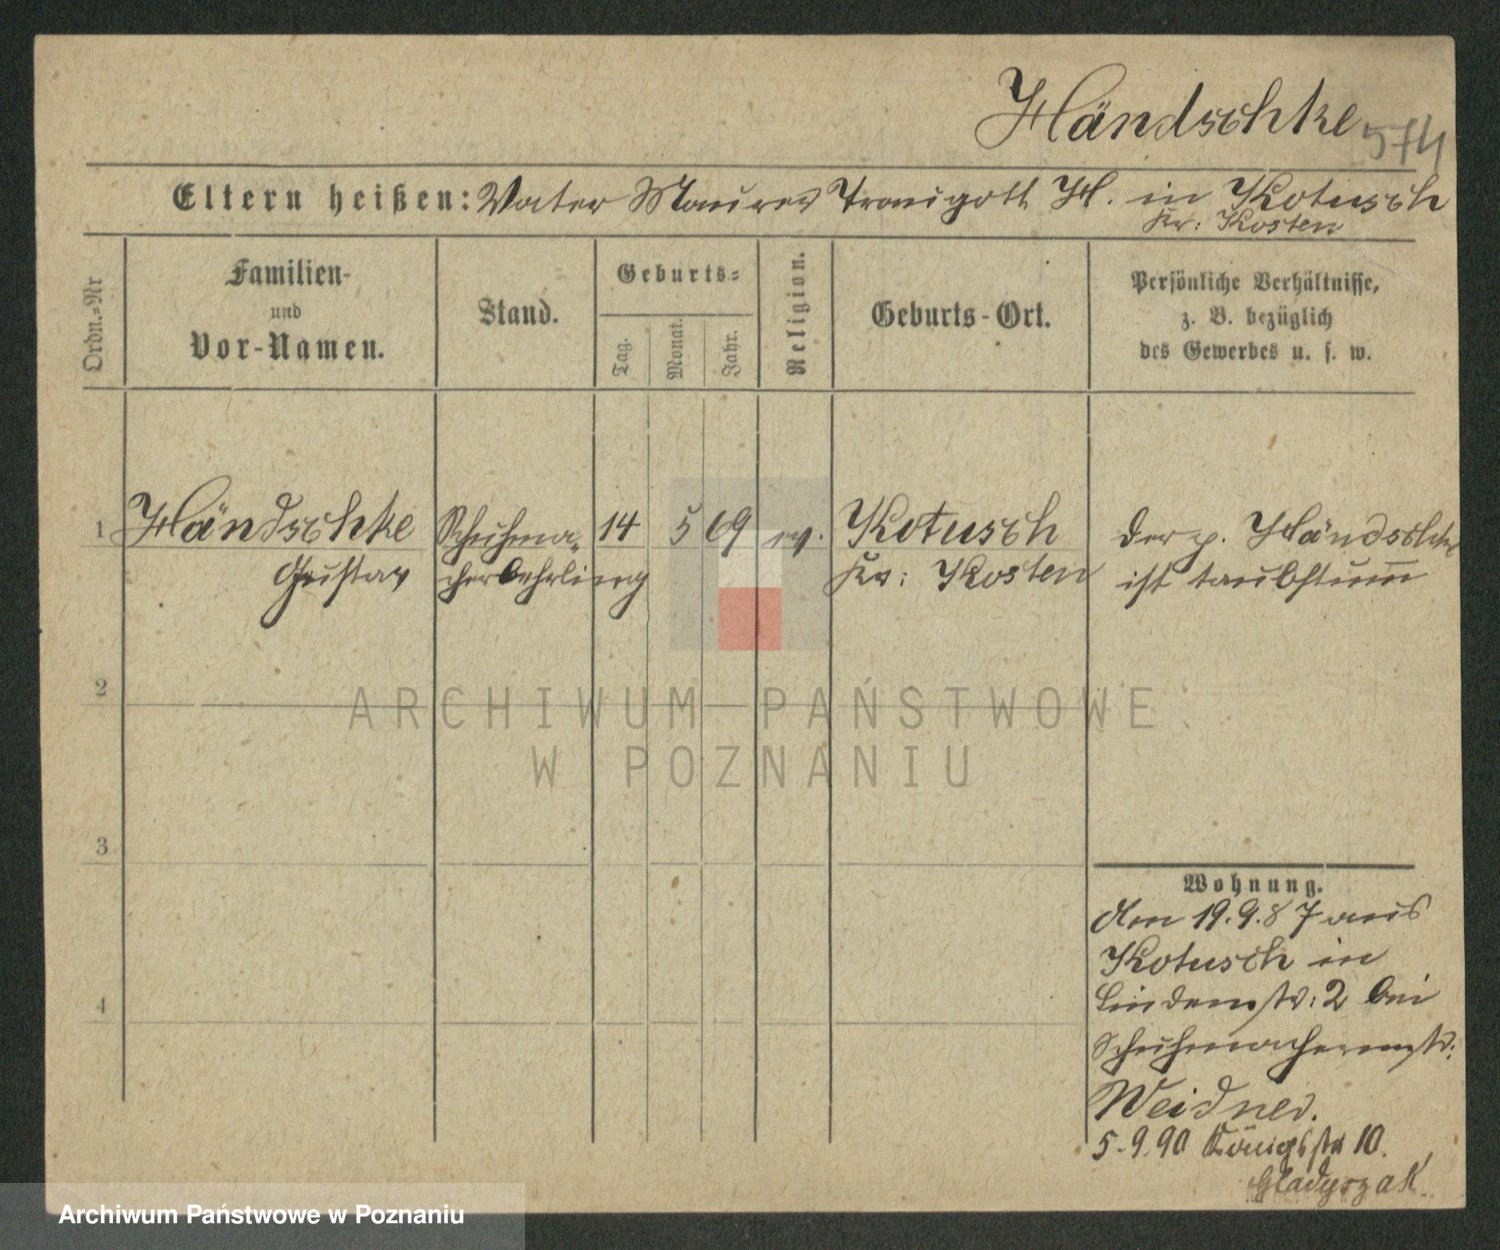 Händschke
574
Eltern heißen: Vater Maurer Traugott H. in Kotusch
Kr: Kosten
Ordn.-Nr
Familien-
und
Vor-Namen.
Stand.
Geburts-
Tag.
Monat.
Jahr.
Religion.
Geburts-Ort.
Persönliche Verhältnisse,
z. B. bezüglich
des Gewerbes u. s. w.
1 Händschke Schuhma- 14 5 69 ev. Kotusch der p. Händschke
Gustav cherlehrling Kr: Kosten ist taubstum̅
2
3
4
Wohnung.
Am 19.9.87 aus
Kotusch in
Lindenstr: 2 bei
Schuhmachermstr:
Weidner.
5.9.90 Königsstr 10.
Gladyszak
ARCHIWUM PAŃSTWOWE
W POZNANIU
Archiwum Państwowe w Poznaniu